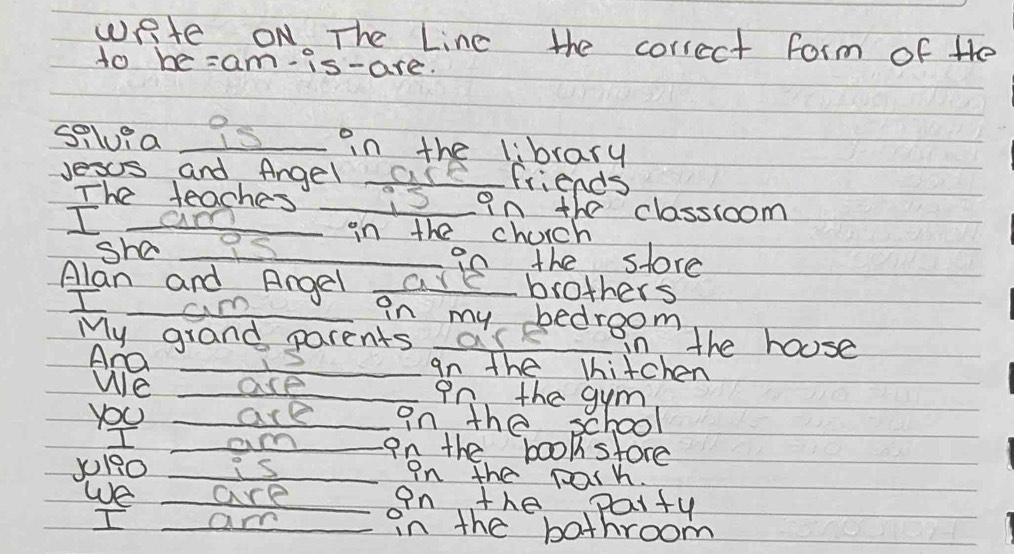 Write ON The Line the correct form of the
to be = am - is - are.
Silvia is in the library
Jesus and Angel are friends
The teaches is in the classroom
I am in the church
She is in the store
Alan and Angel are brothers
I am in my bedroom
My grand parents are in the house
Ana is in the khitchen
We are in the gym
you are in the school
I am in the bookstore
julio is in the park.
We are in the Party
I am in the bathroom